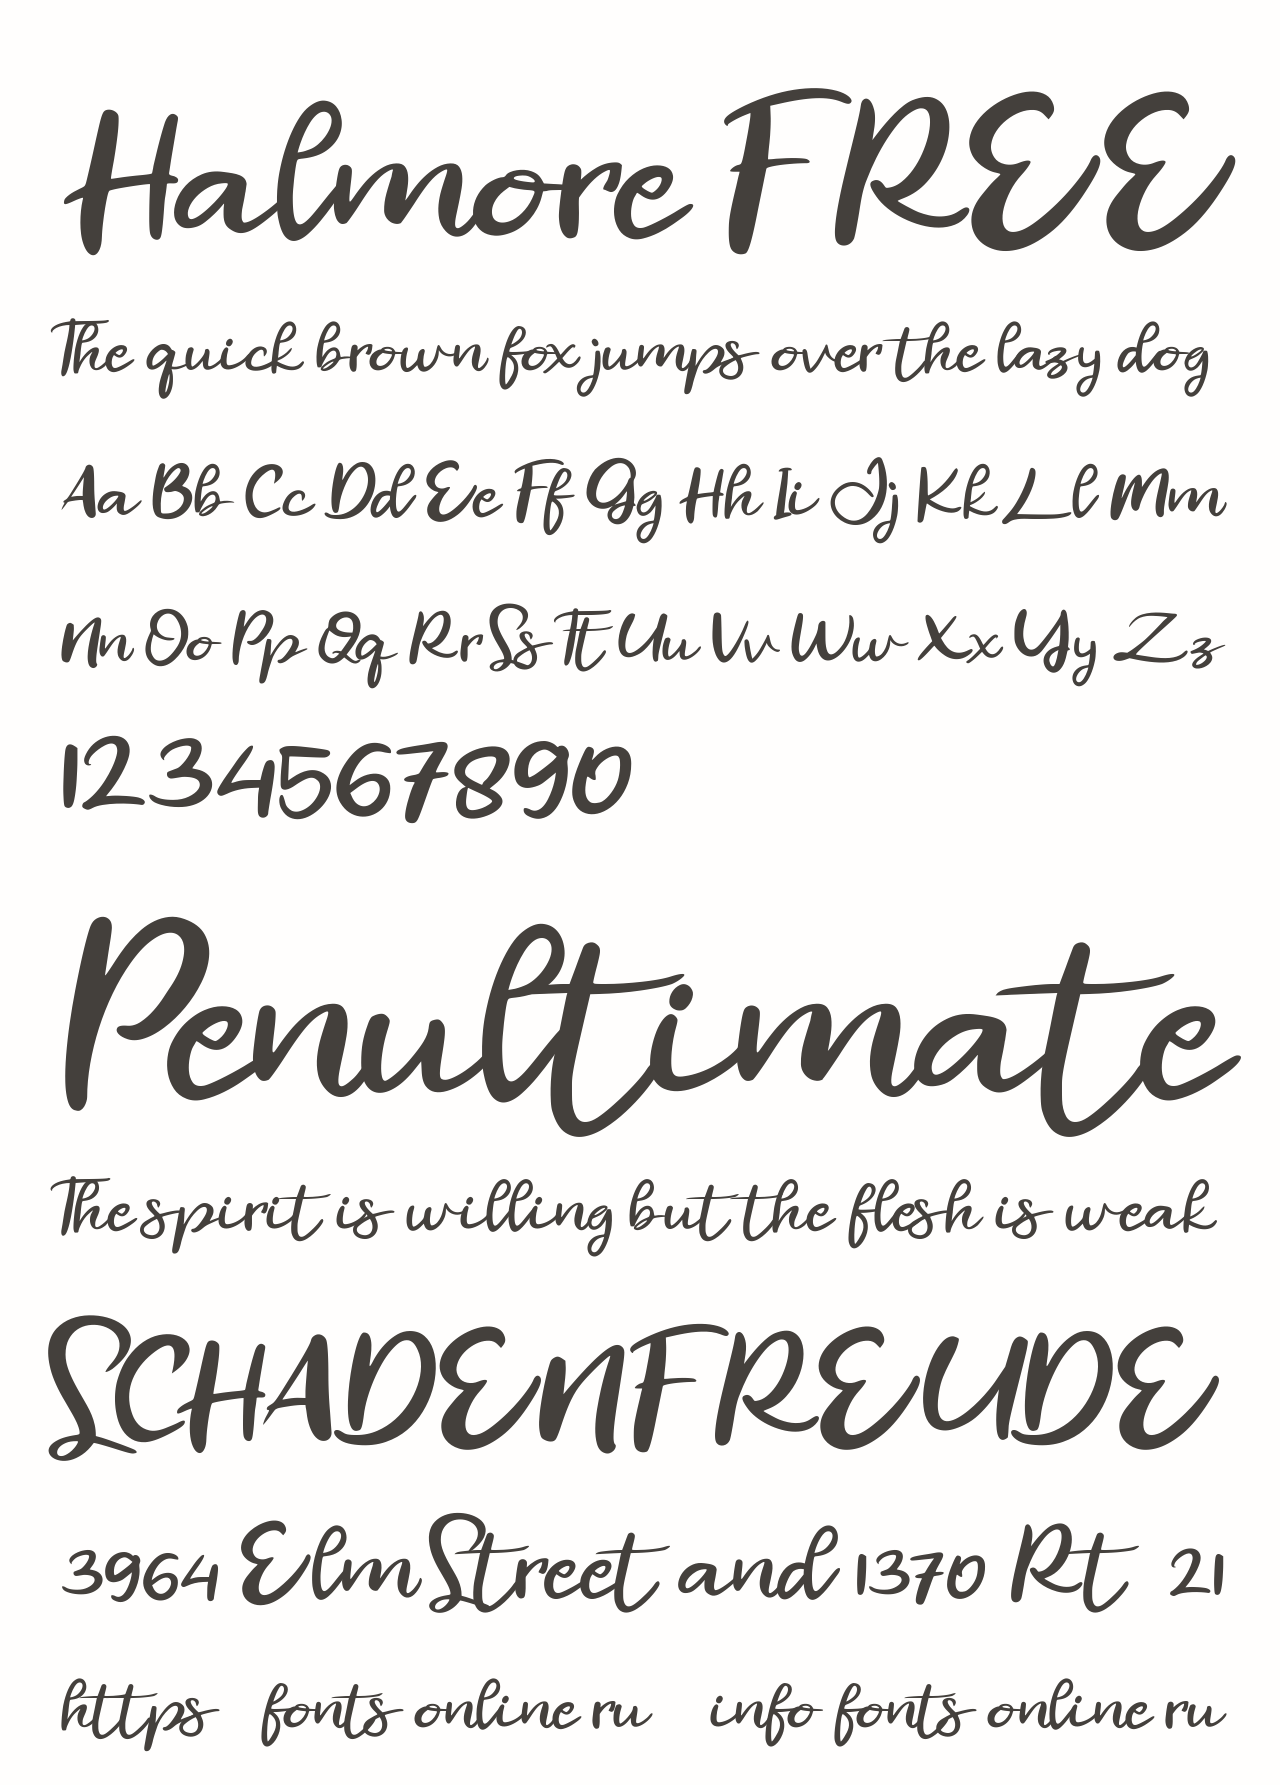 Halmore FREE
The quick brown fox jumps over the lazy dog
Aa Bb Cc Dd Ee Ff Gg Hh Ii Jj Kk Ll Mm
Nn Oo Pp Qq Rr Ss Tt Uu Vv Ww Xx Yy Zz
1234567890
Penultimate
The spirit is willing but the flesh is weak
SCHADENFREUDE
3964 Elm Street and 1370 Rt 21
https fonts online ru info fonts online ru